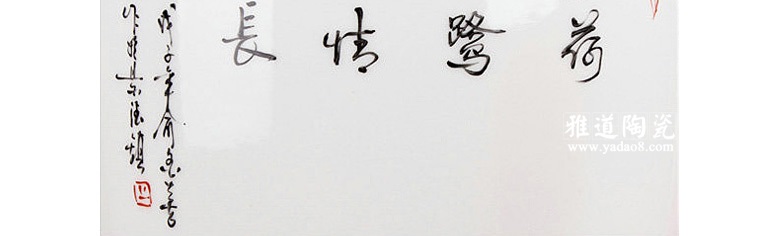 荷鹭情長
戊子年俞金喜書
作於景德鎮
雅道陶瓷
www.yadao8.com